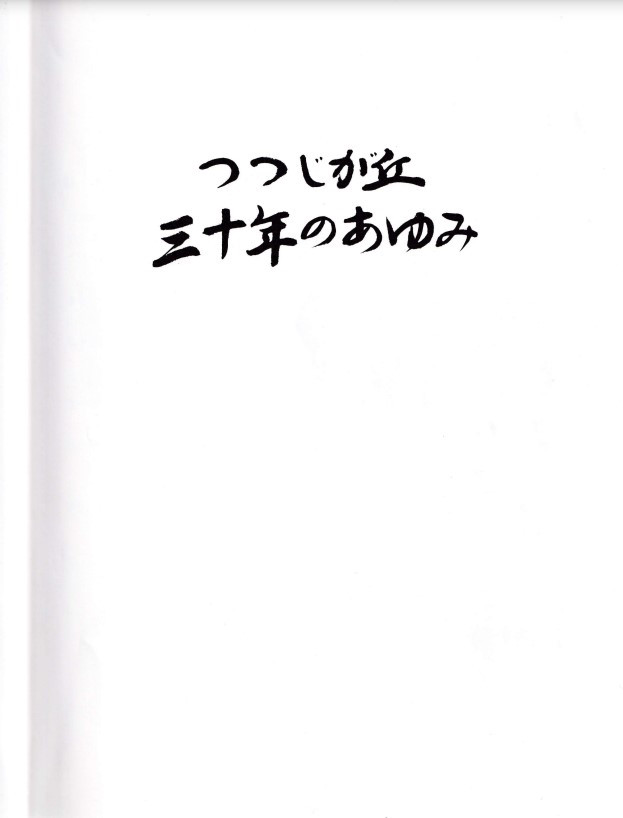 つつじが丘
三十年のあゆみ